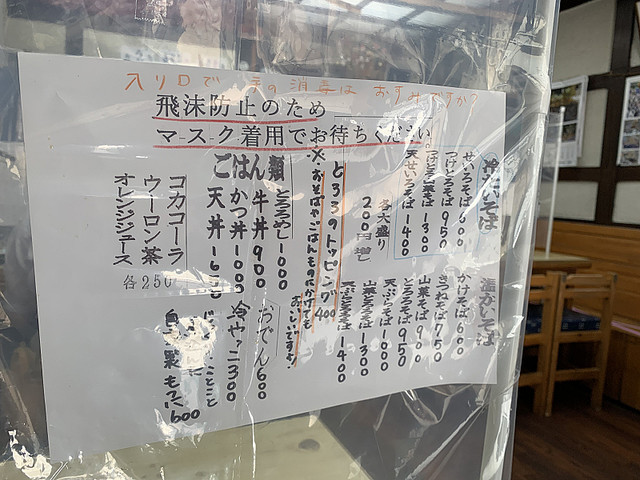 入り口で手の消毒はおすみですか?
飛沫防止のため
マスク着用でお待ちください。
冷たいそば
せいろそば 600
つけとろそば 950
つけとろ天そば 1300
天せいろそば 1400
各大盛り
200円増し
温かいそば
かけそば 600
きつねそば 750
山菜そば 900
とろろそば 950
天ぷらそば 1000
山菜とろろそば 1300
天ぷらとろろそば 1400
とろろのトッピング 400
※おそばやごはんものにかけても
おいしいです!
ごはん類
とろろめし 1000
牛丼 900
かつ丼 1000
天丼 1600
おでん 600
冷やっこ 300
ことこと
もつ 600
コカコーラ
ウーロン茶
オレンジジュース
各250